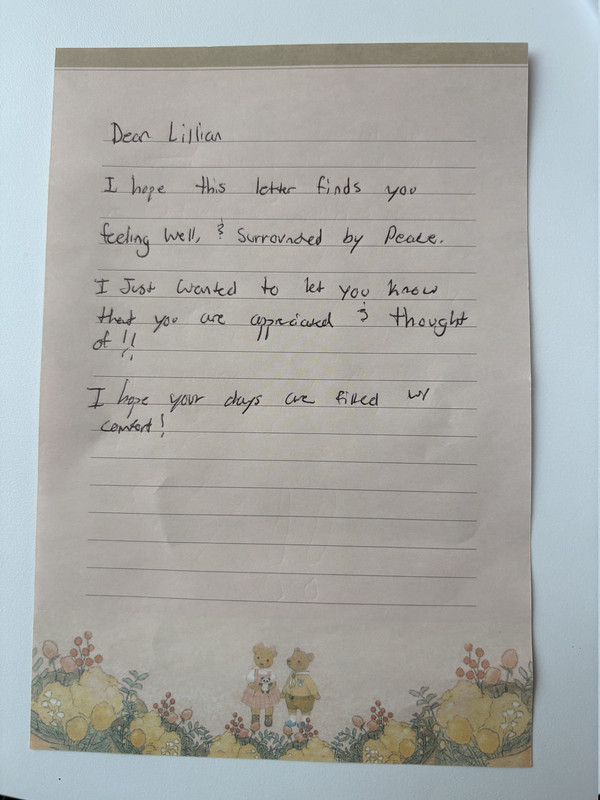 Dear Lillian
I hope this letter finds you
feeling well, & surrounded by Peace.
I Just wanted to let you know
that you are appreciated & thought
of !!
I hope your days are filled w/
comfort!